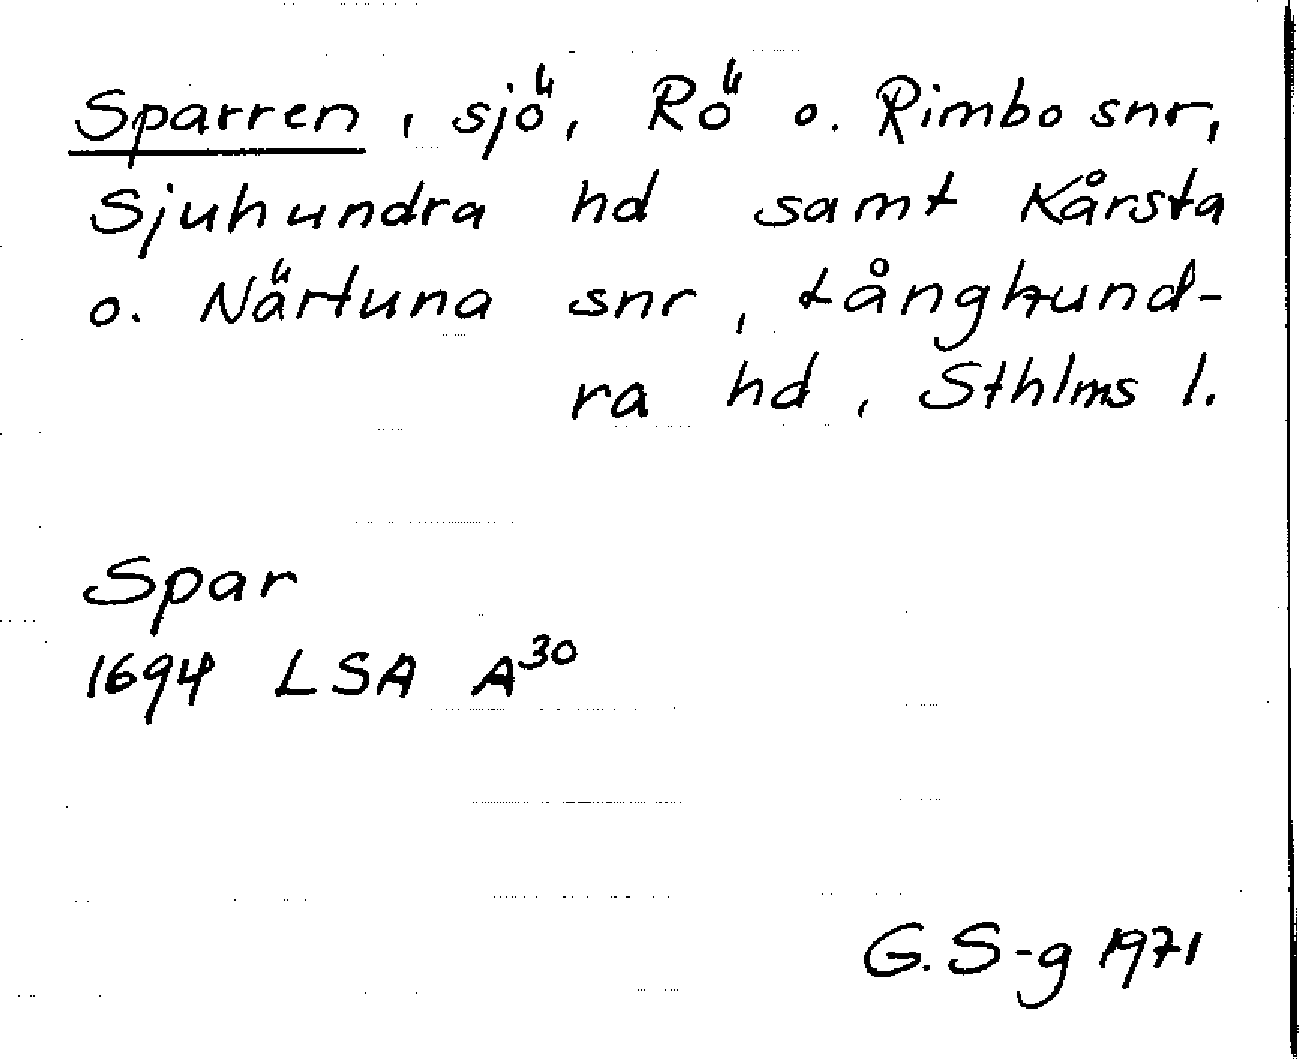 Sparren, sjö, Rö o. Rimbo snr,
Sjuhundra hd samt Kårsta
o. Närtuna snr, Långhund-
ra hd, Sthlms l.
Spar
1694 LSA A³⁰
G. S-g 1971